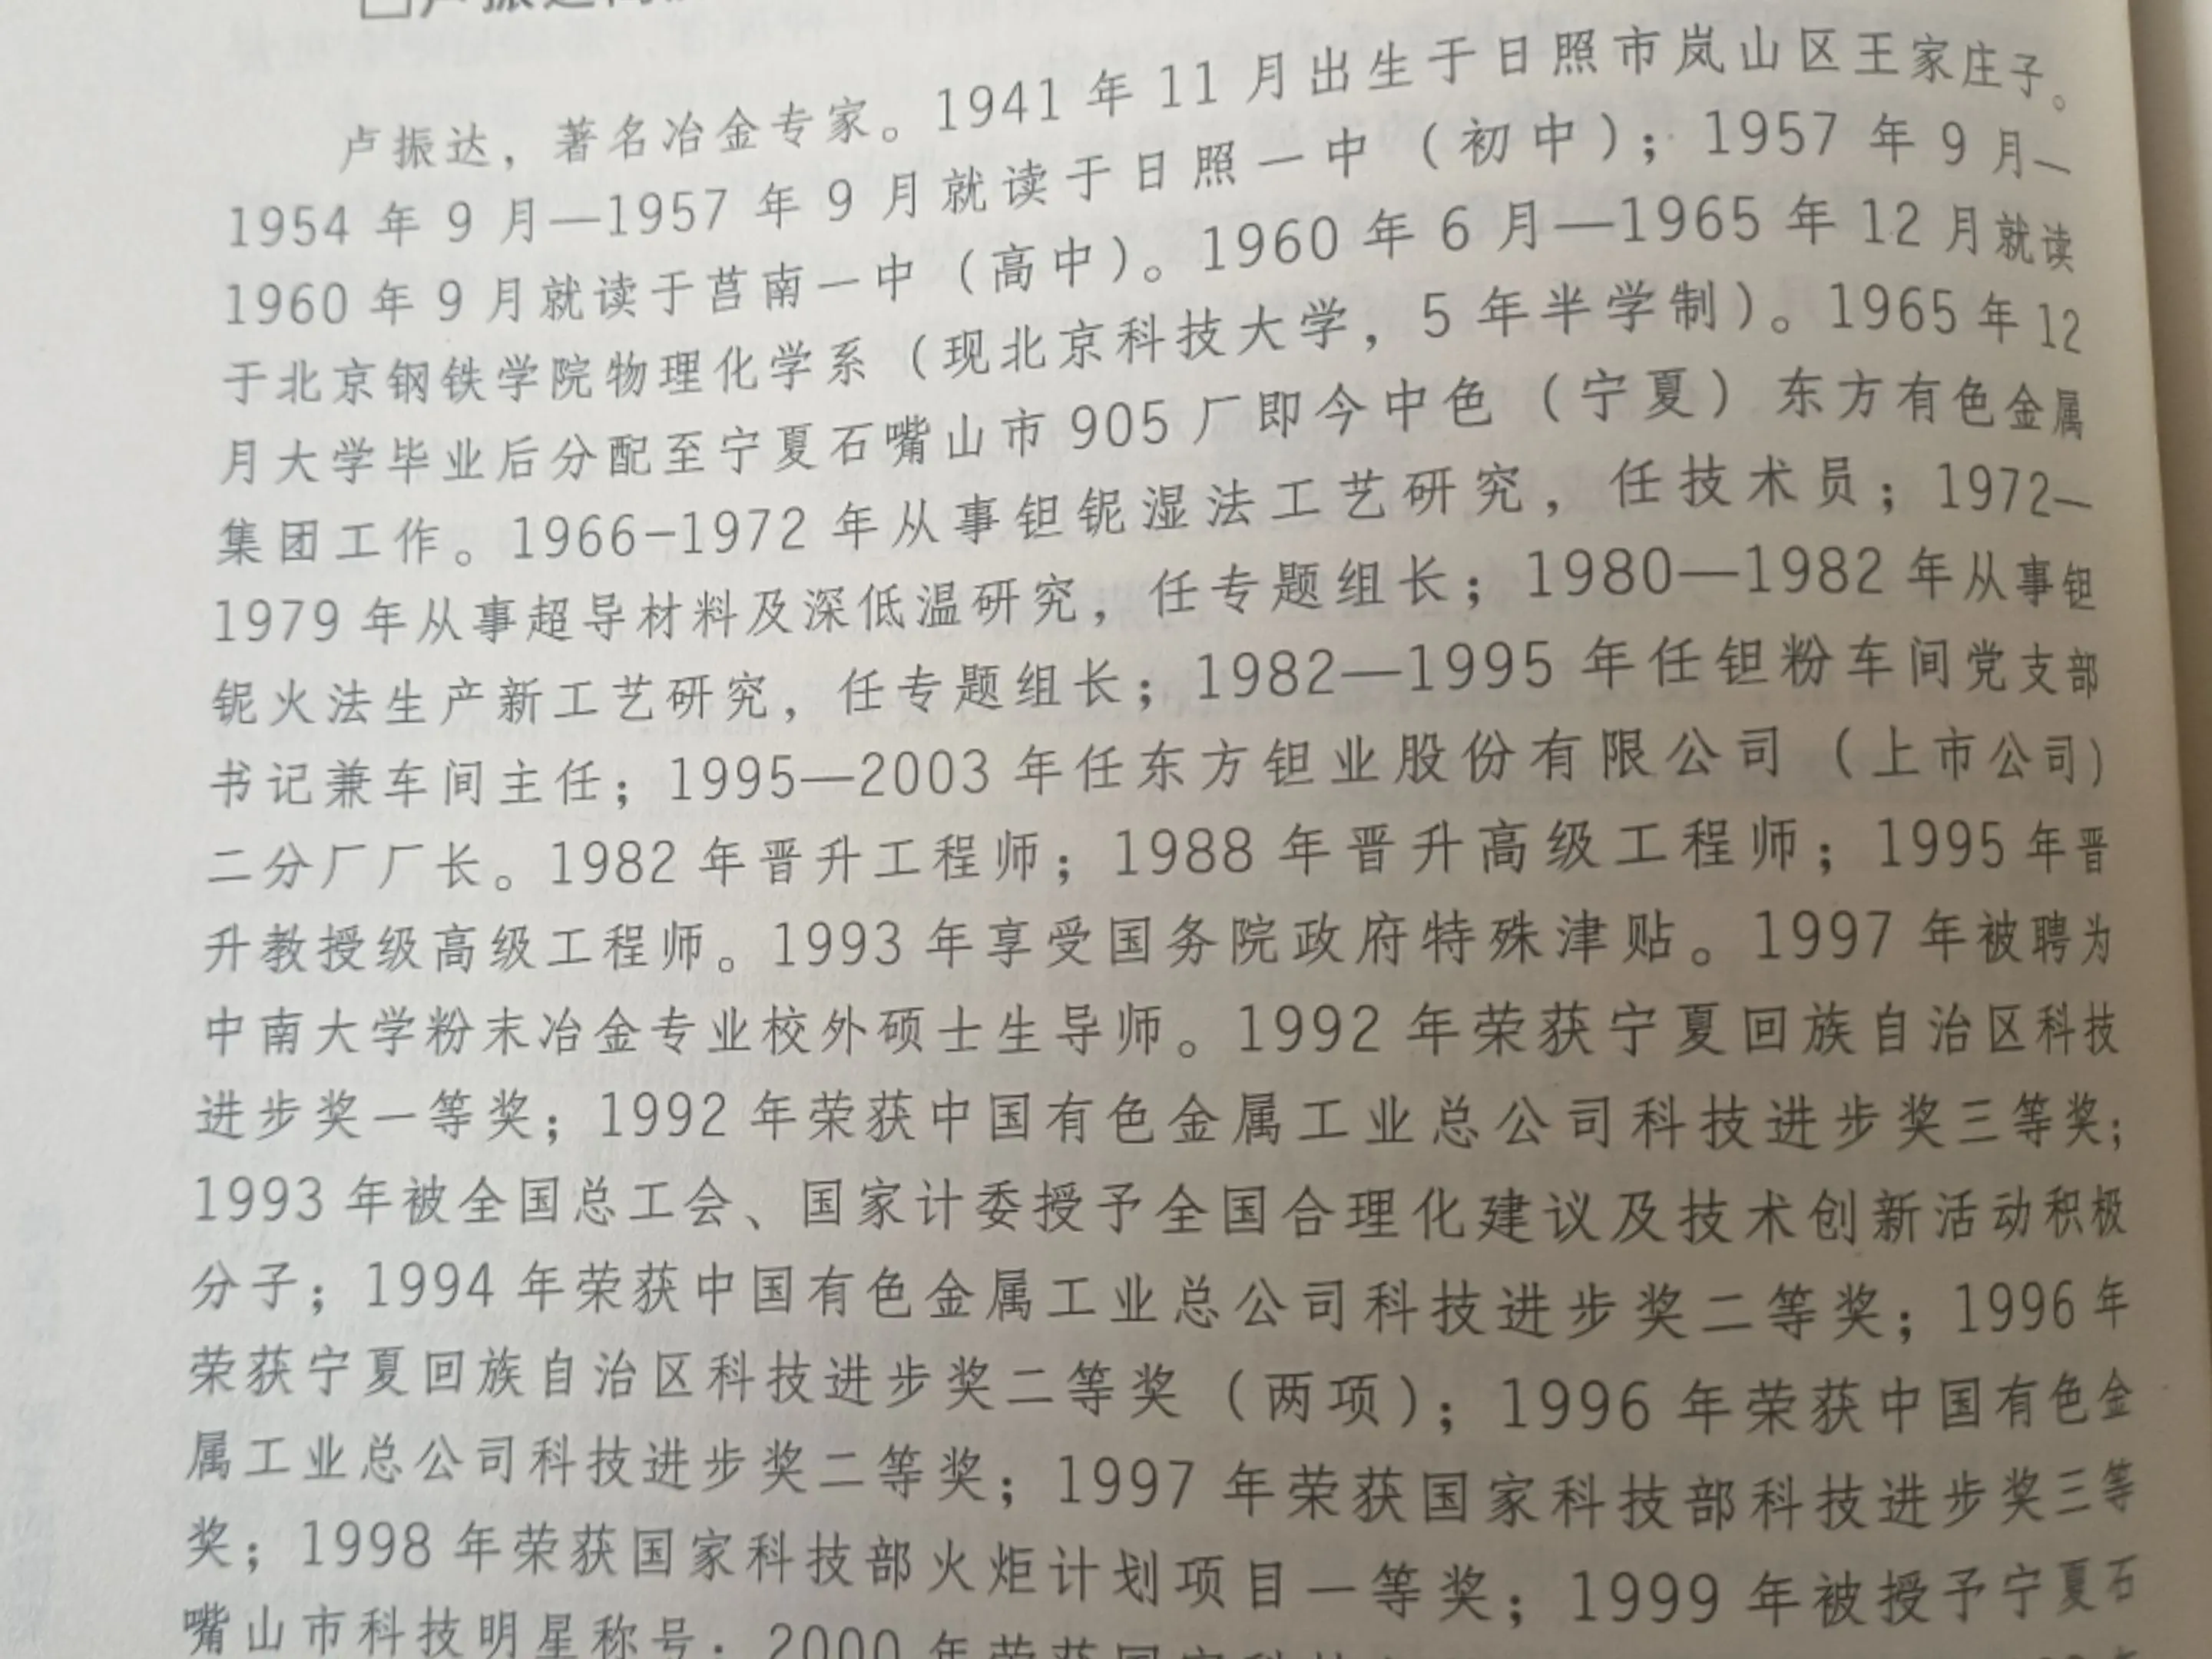 卢振达，著名冶金专家。1941 年 11 月出生于日照市岚山区王家庄子。
1954 年 9 月—1957 年 9 月就读于日照一中（初中）；1957 年 9 月—
1960 年 9 月就读于莒南一中（高中）。1960 年 6 月—1965 年 12 月就读
于北京钢铁学院物理化学系（现北京科技大学，5 年半学制）。1965 年 12
月大学毕业后分配至宁夏石嘴山市 905 厂即今中色（宁夏）东方有色金属
集团工作。1966-1972 年从事钽铌湿法工艺研究，任技术员；1972—
1979 年从事超导材料及深低温研究，任专题组长；1980—1982 年从事钽
铌火法生产新工艺研究，任专题组长；1982—1995 年任钽粉车间党支部
书记兼车间主任；1995—2003 年任东方钽业股份有限公司（上市公司）
二分厂厂长。1982 年晋升工程师；1988 年晋升高级工程师；1995 年晋
升教授级高级工程师。1993 年享受国务院政府特殊津贴。1997 年被聘为
中南大学粉末冶金专业校外硕士生导师。1992 年荣获宁夏回族自治区科技
进步奖一等奖；1992 年荣获中国有色金属工业总公司科技进步奖三等奖；
1993 年被全国总工会、国家计委授予全国合理化建议及技术创新活动积极
分子；1994 年荣获中国有色金属工业总公司科技进步奖二等奖；1996 年
荣获宁夏回族自治区科技进步奖二等奖（两项）；1996 年荣获中国有色金
属工业总公司科技进步奖二等奖；1997 年荣获国家科技部科技进步奖三等
奖；1998 年荣获国家科技部火炬计划项目一等奖；1999 年被授予宁夏石
嘴山市科技明星称号；2000 年荣获国家科技